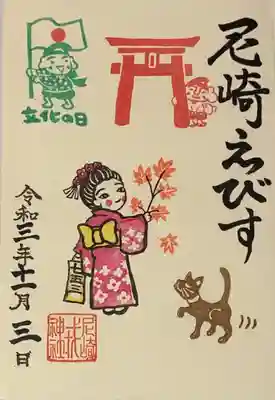 尼崎えびす
文化の日
令和三年十一月三日
尼崎
戎
神社